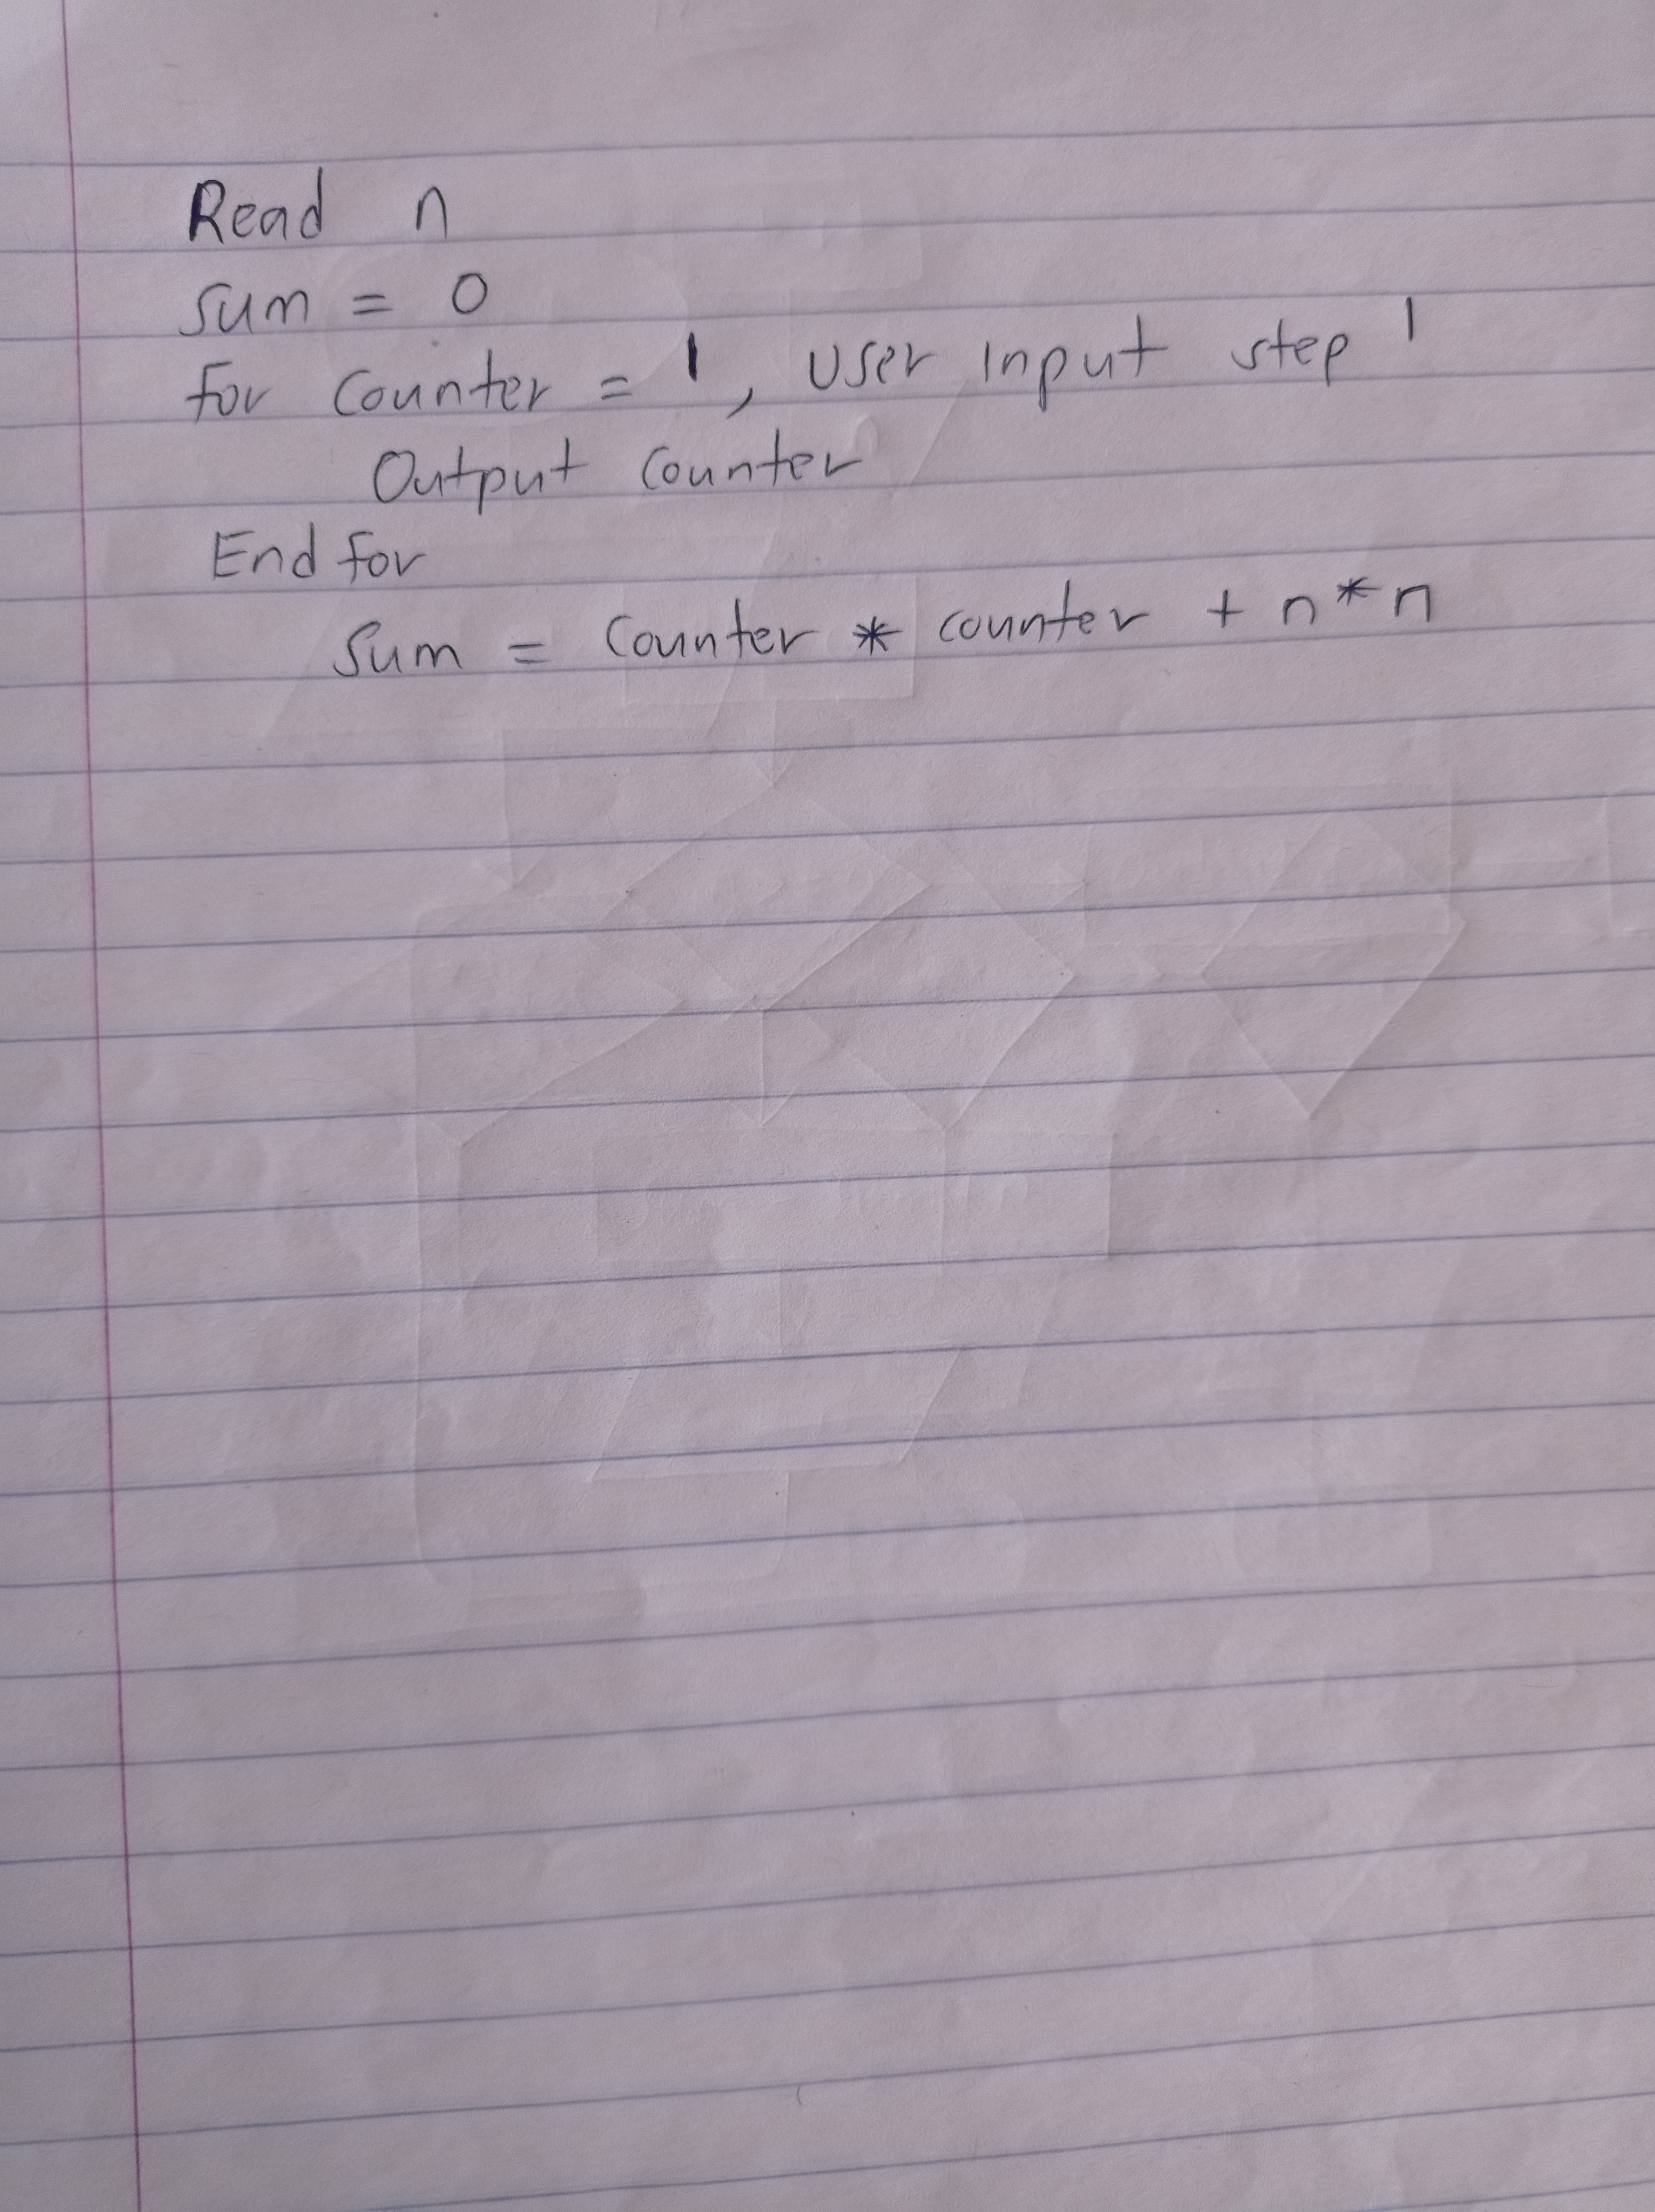 Read n
sum = 0
for counter = 1, user input step 1
Output counter
End for
Sum = counter * counter + n*n